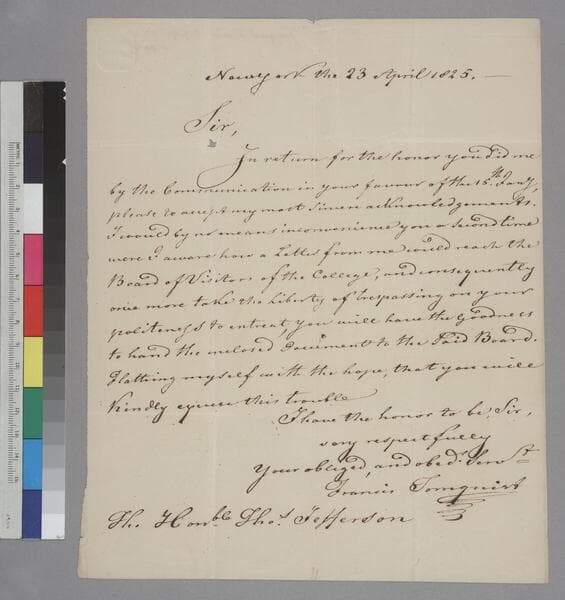 Newyork the 23 April 1825. —
Sir,
In return for the honor you did me
by the Communication in your favour of the 15th Jany,
please to accept my most sincere acknowledgements.
I would by no means inconvenience you a second time
were I aware how a Letter from me would reach the
Board of Visitors of the College, and consequently
once more take the liberty of trespassing on your
politeness to entreat, you will have the goodness
to hand the inclosed Document to the Said Board.
Flattring myself with the hope, that you will
Kindly excuse this trouble
I have the honor to be, Sir,
very respectfully
Your obliged, and obedt Servt
Francis
Th. Honble Thos Jefferson